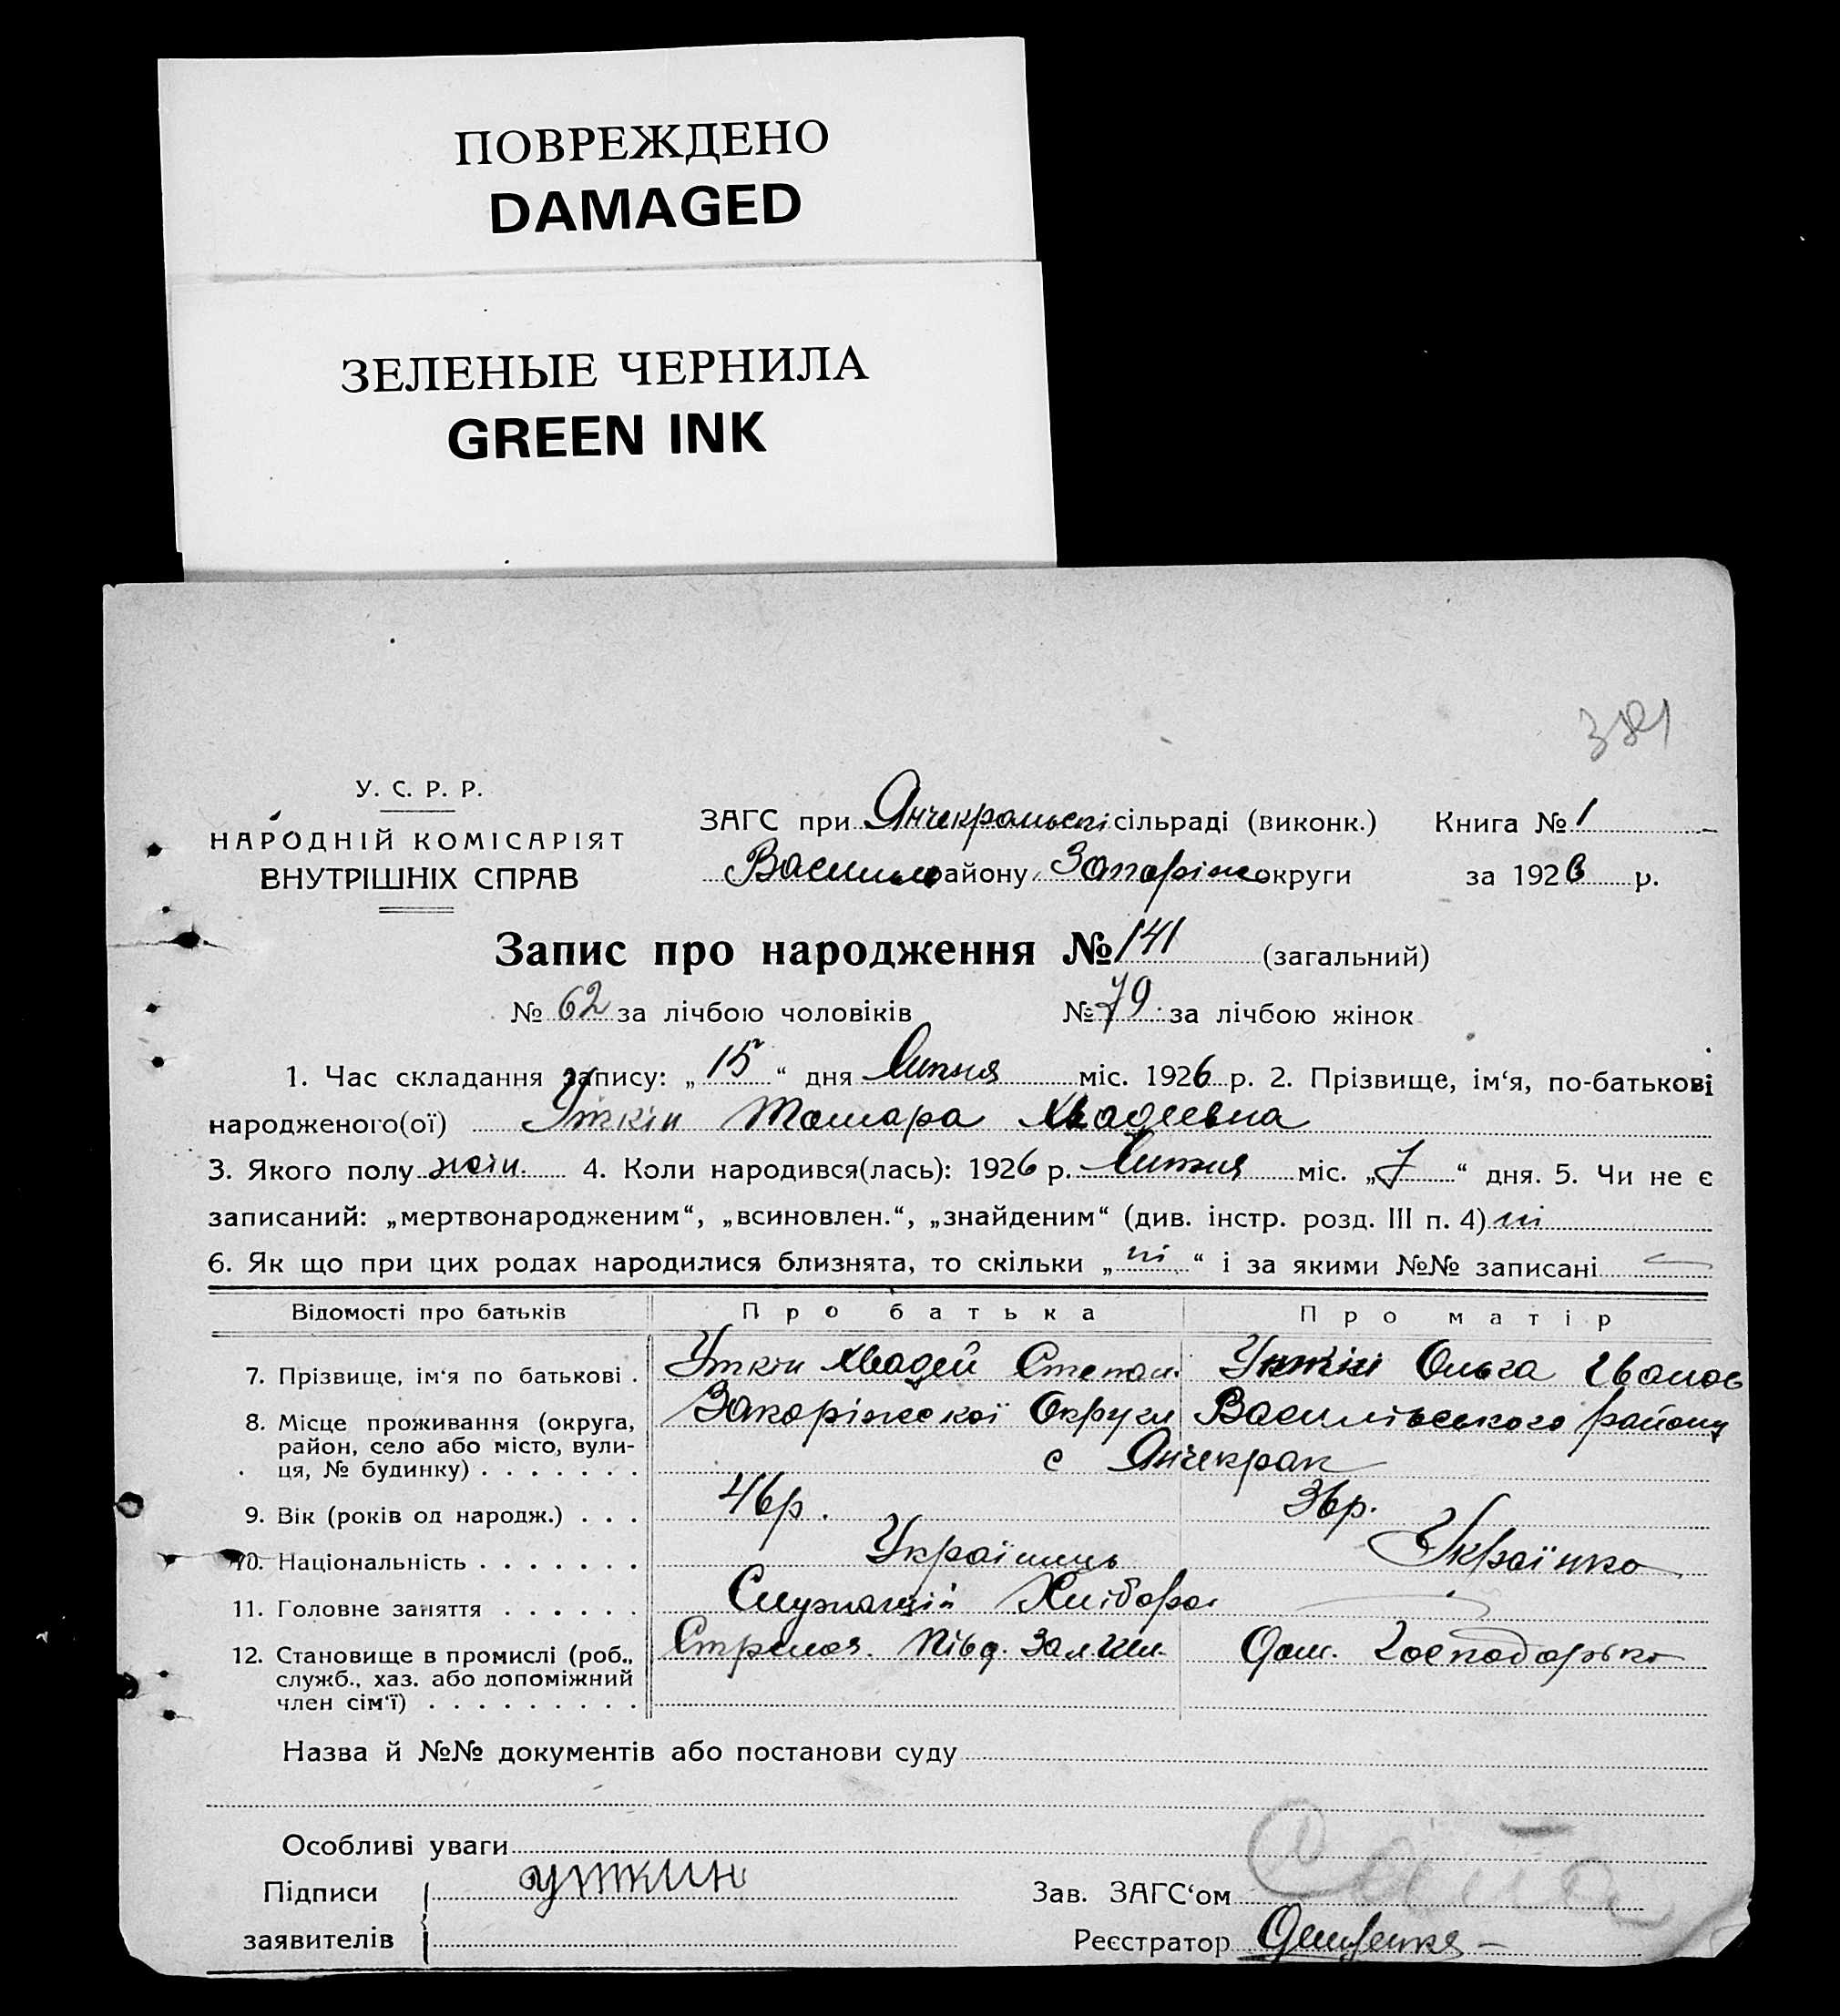 ПОВРЕЖДЕНО
DAMAGED
ЗЕЛЕНЫЕ ЧЕРНИЛА
GREEN INK
381
У. С. Р. Р.
НАРОДНІЙ КОМІСАРІЯТ
ВНУТРІШНІХ СПРАВ
ЗАГС при сільраді (виконк.) Книга № 1
Васильв району Запоріж округи за 1926 р.
Запис про народження № 141 (загальний)
№ 62 за лічбою чоловіків № 79 за лічбою жінок
1. Час складання запису: „ 15 “ дня Липня міс. 1926 р. 2. Прізвище, ім‘я, по-батькові
народженого(ої) Уткін Тамара Хвадеевна
3. Якого полу жін. 4. Коли народився(лась): 1926 р. Липня міс. „ 7 “ дня. 5. Чи не є
записаний: „мертвонародженим“, „всиновлен.“, „знайденим“ (див. інстр. розд. III п. 4) ні
6. Як що при цих родах народилися близнята, то скільки „ ні “ і за якими №№ записані —
Відомості про батьків Про батька Про матір
7. Прізвище, ім‘я по батькові . Уткін Хвадей Степан. Ольга Іванов
8. Місце проживання (округа, Запоріжскої Округи Василівського району
район, село або місто, вули-
ця, № будинку) . . . . . . . с Янчекрак
9. Вік (років од народж.) . . . 46р. 36р.
10. Національність . . . . . . . Українець Українка
11. Головне заняття . . . . . . Служащій Хлібороб
12. Становище в промислі (роб., Півд. Дом. Господарька
служб., хаз. або допоміжний
член сім‘ї) . . . . . . . . .
Назва й №№ документів або постанови суду
Особливі уваги
Підписи уткин Зав. ЗАГС‘ом
заявителів Реєстратор